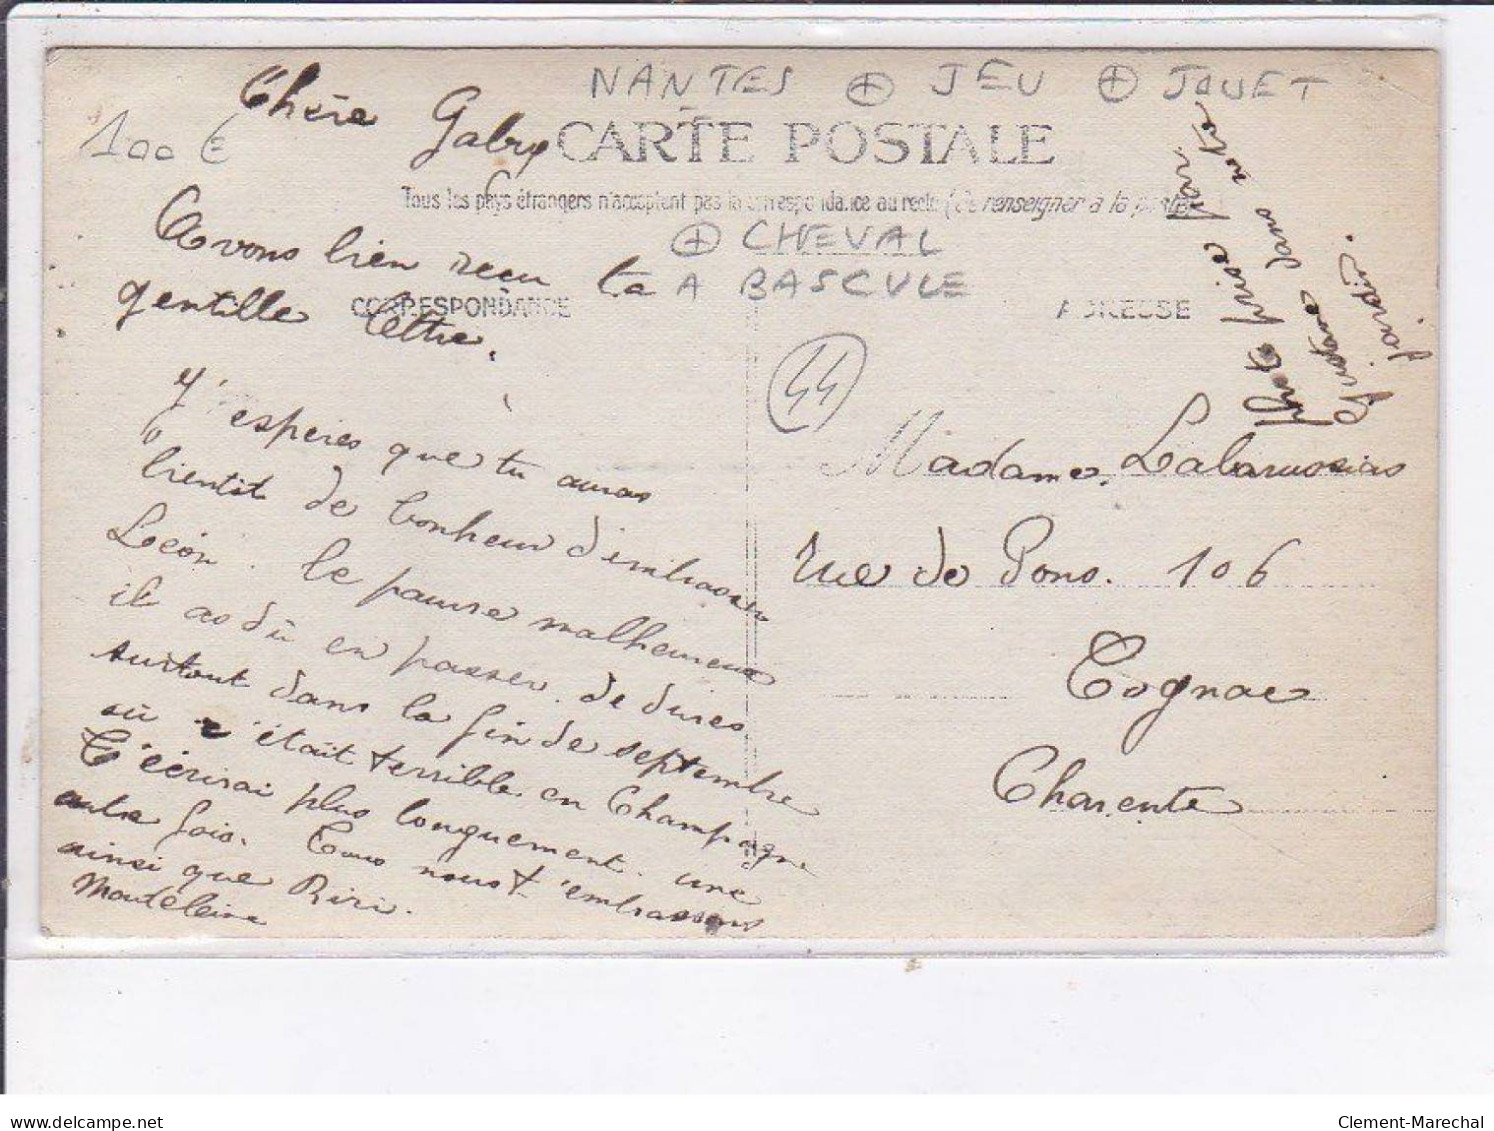 NANTES ⊕ JEU ⊕ JOUET
100 €
CARTE POSTALE
Tous les pays étrangers n'acceptent pas la correspondance au recto (Se renseigner à la poste)
⊕ CHEVAL
A BASCULE
CORRESPONDANCE
ADRESSE
44
Chère Gabry
Avons bien reçu ta
gentille lettre.
J'espères que tu auras
bientit de bonheur d'embrasser
Léon. le pauvre malheureux
il as dû en passer de dures
surtout dans la fin de septembre
où c'était terrible en Champagne
T'écrirai plus longuement une
autre fois. Tous nous t'embrassons
ainsi que Riri.
Madeleine
Photo prise par
Gustave dans notre
jardin.
Madame Labarussias
rue de Pons. 106
Cognac
Charente
delcampe.net
Clement-Marechal